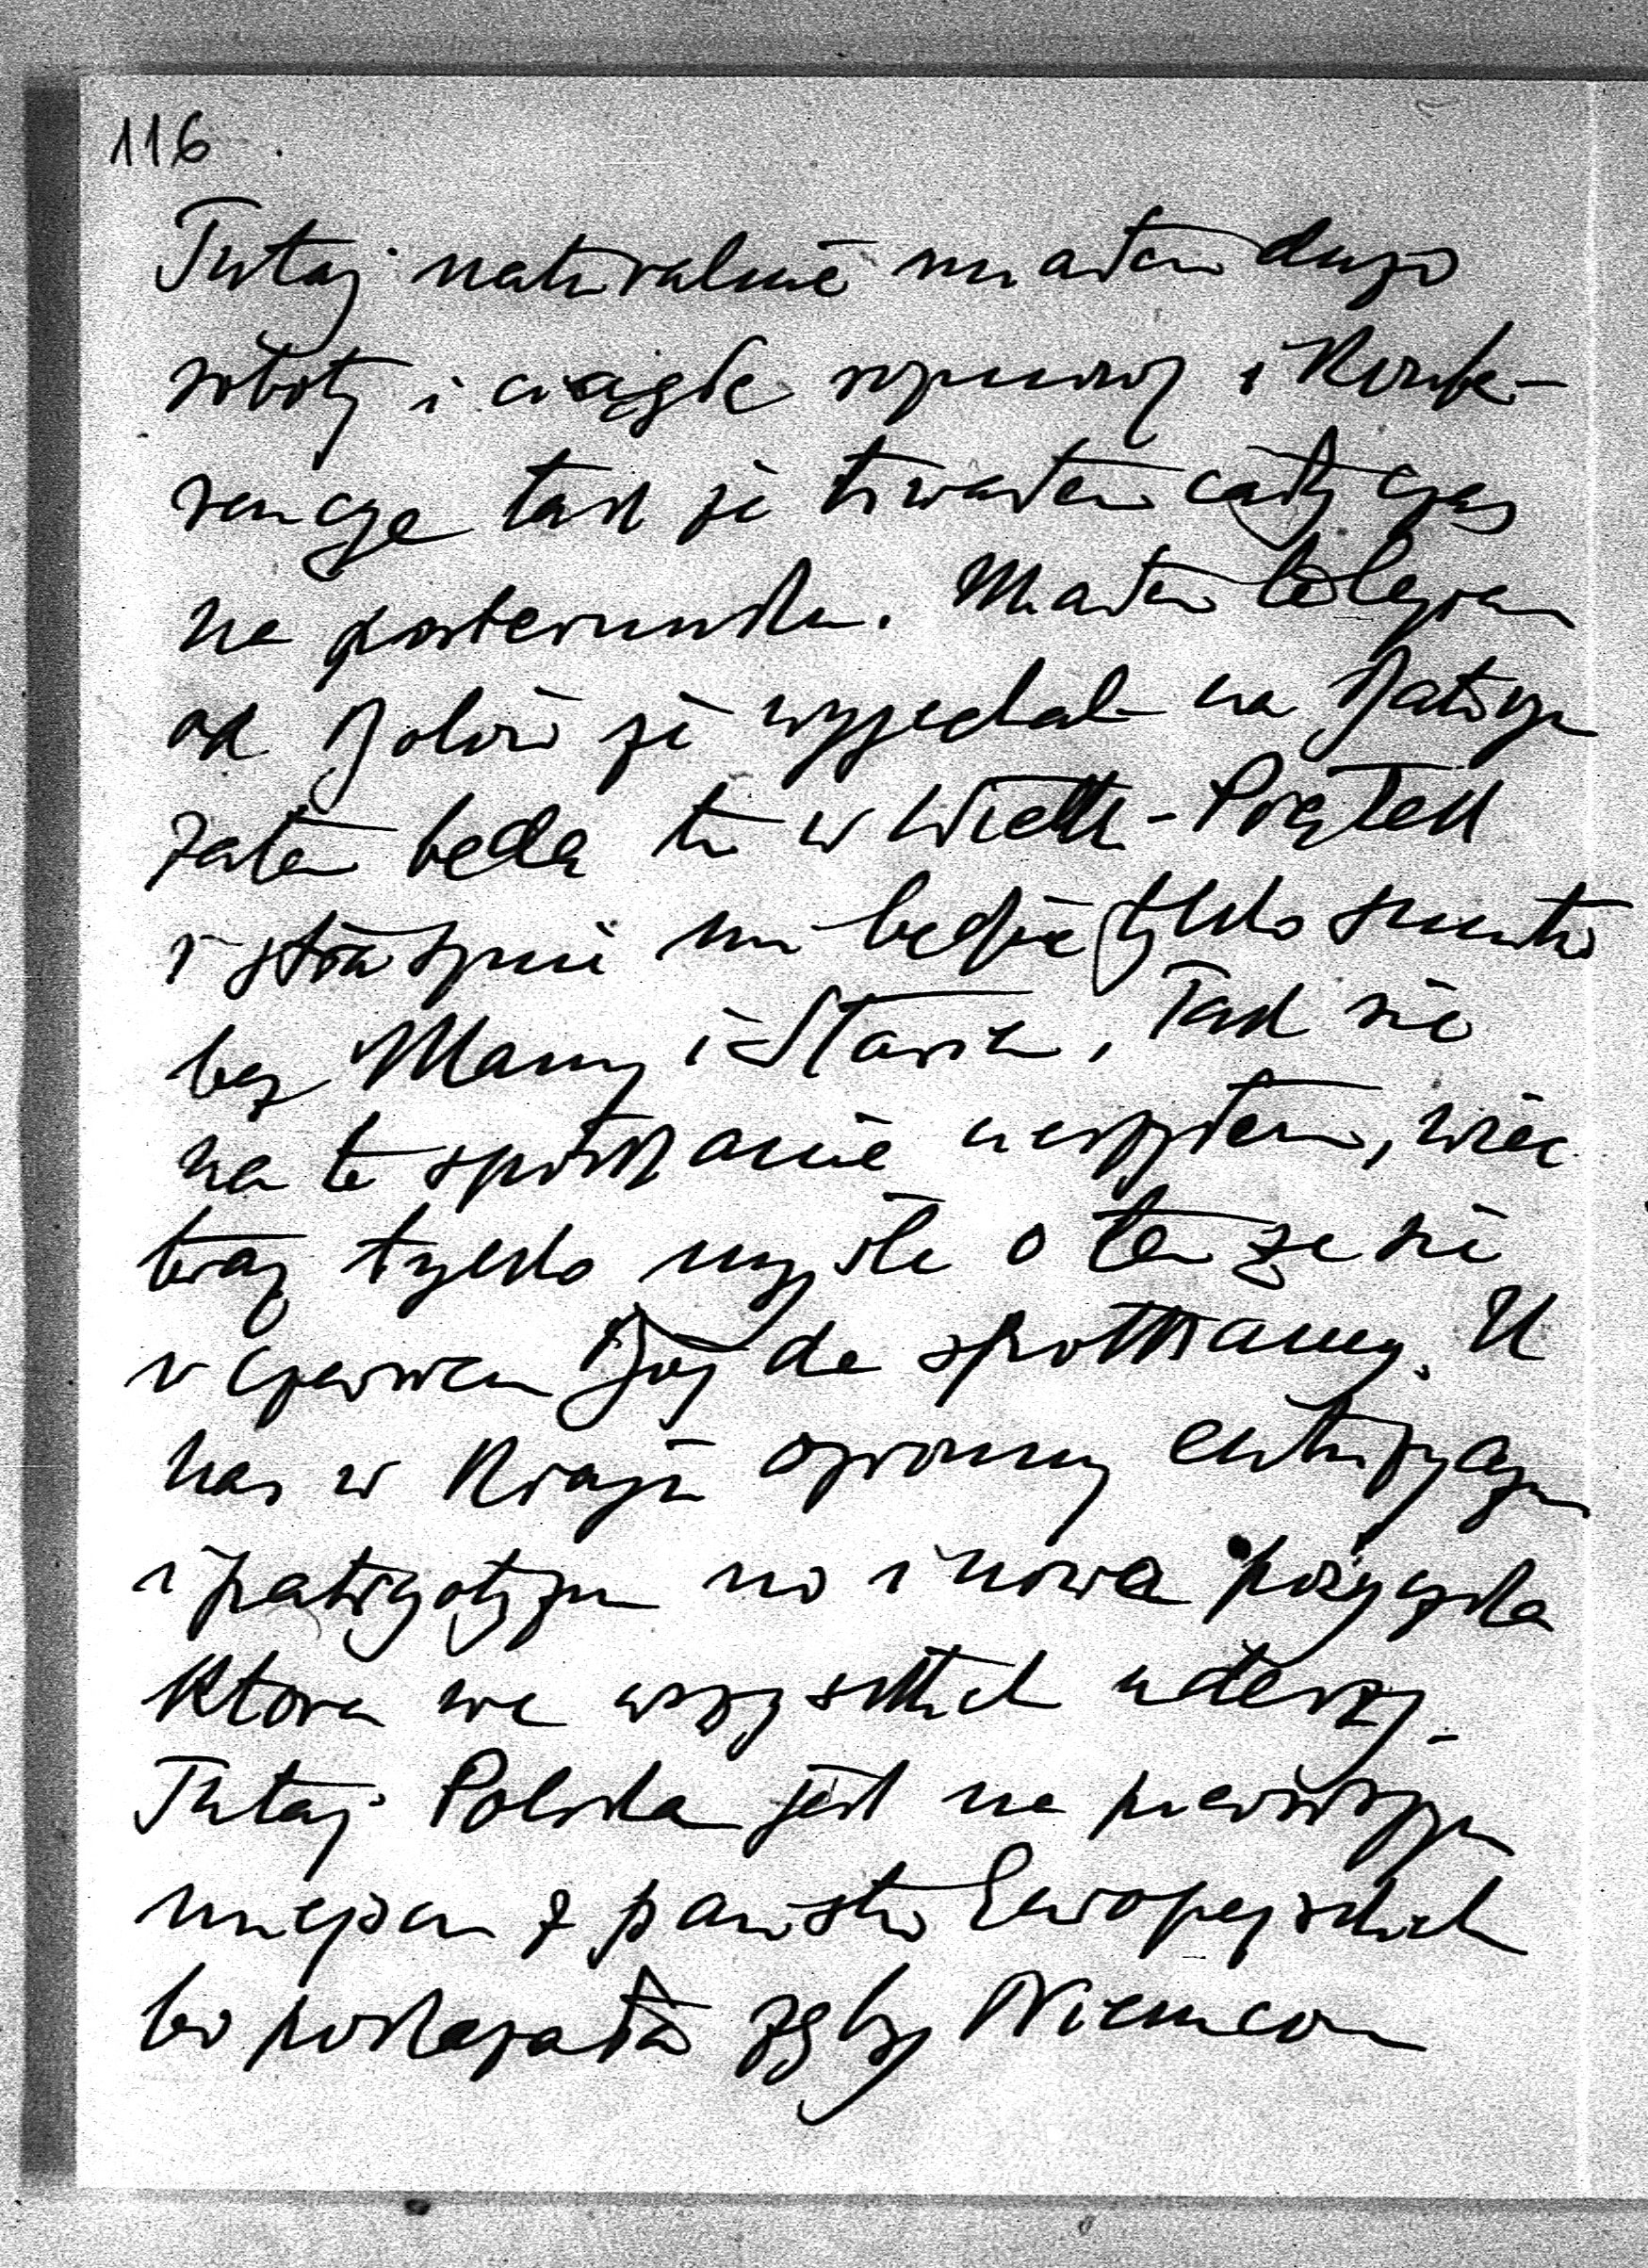 116
Tutaj naturalnie miałem dużo
roboty i ciągle rozmowy i Konfe-
rencje tak że trwałem cały czas
na posterunku. Miałem telegram
od że wyjechał na
zatem będą tu w Wielki-Piątek
i strasznie mi będzie tylko smutno
bez Mamy i Stasia, Tak się
na to spotkanie cieszyłem, więc
teraz tylko myślę o tem że się
w czerwcu Bóg da spotkamy. U
nas w Kraju ogromny entuzjazm
i patryotyzm no i nowa pożyczka
która we wszystkich uderzy.
Tutaj Polska jest na pierwszym
miejscu z państw Europejskich
bo pokazała zęby Niemcom